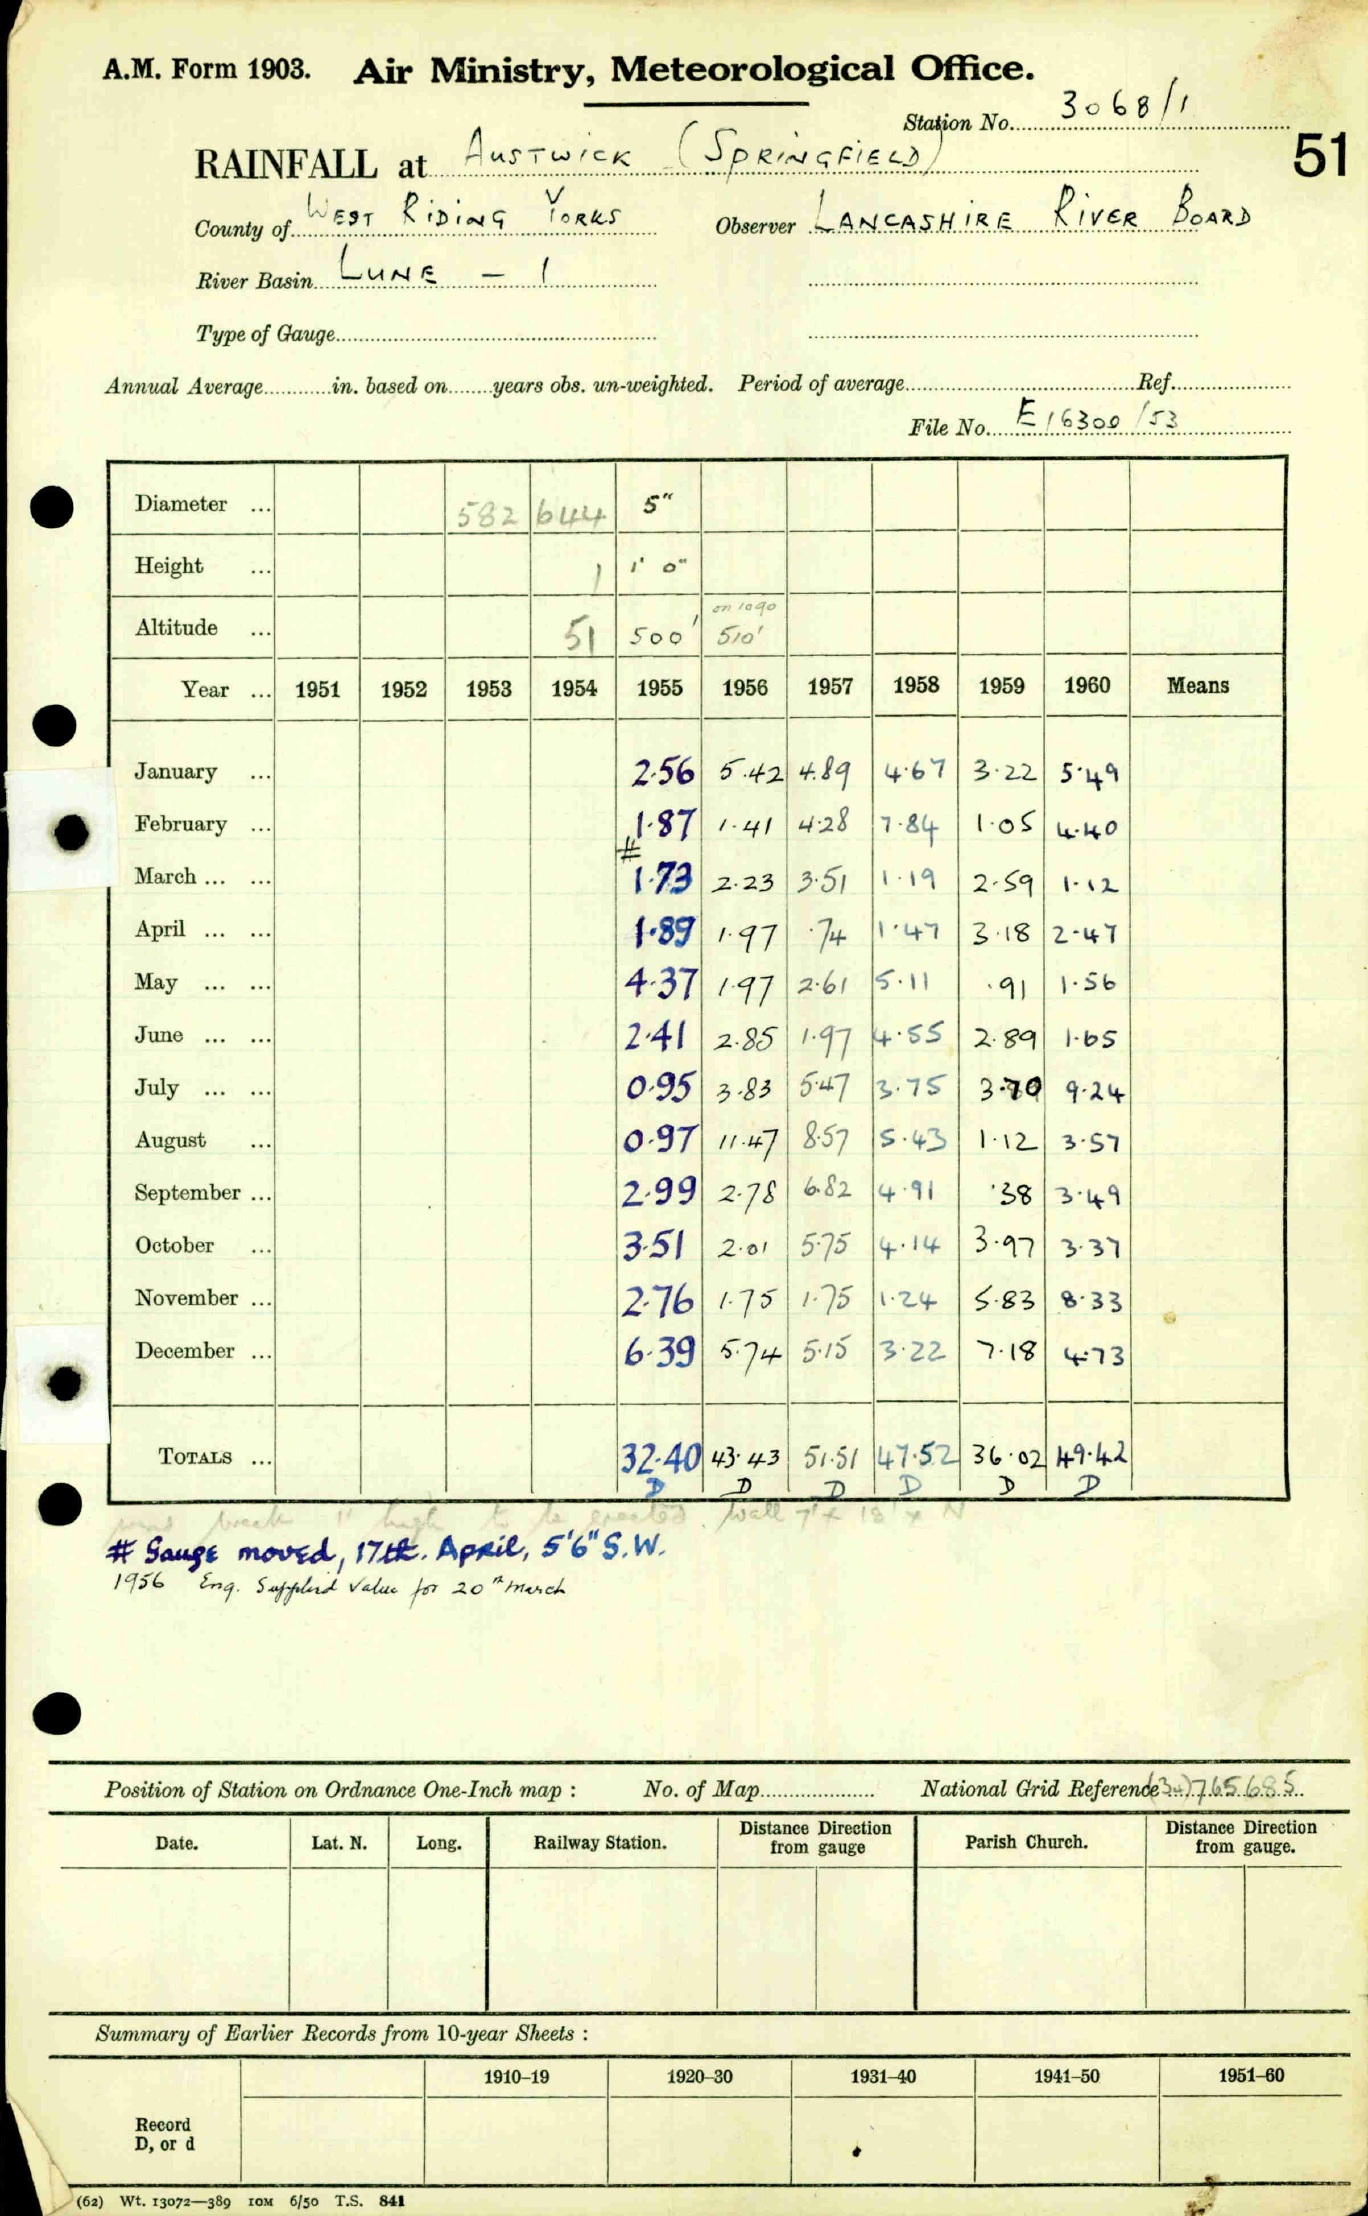 A.M. Form 1903. Air Ministry, Meteorological Office.
Station No. 3068/1
51
RAINFALL at AUSTWICK (SPRINGFIELD)
County of WEST RIDING YORKS Observer LANCASHIRE RIVER BOARD
River Basin LUNE - 1
Type of Gauge
Annual Average in. based on years obs. un-weighted. Period of average Ref.
File No. E16300/53
Diameter ... 582 644 5"
Height ... 1 1' 0"
on 1090
Altitude ... 51 500' 510'
Year ... 1951 1952 1953 1954 1955 1956 1957 1958 1959 1960 Means
January ... 2.56 5.42 4.89 4.67 3.22 5.49
February ... 1.87 1.41 4.28 7.84 1.05 4.40
March ... ... # 1.73 2.23 3.51 1.19 2.59 1.12
April ... ... 1.89 1.97 .74 1.47 3.18 2.47
May ... ... 4.37 1.97 2.61 5.11 .91 1.56
June ... ... 2.41 2.85 1.97 4.55 2.89 1.65
July ... ... 0.95 3.83 5.47 3.75 3.70 9.24
August ... 0.97 11.47 8.57 5.43 1.12 3.57
September ... 2.99 2.78 6.82 4.91 .38 3.49
October ... 3.51 2.01 5.75 4.14 3.97 3.37
November ... 2.76 1.75 1.75 1.24 5.83 8.33
December ... 6.39 5.74 5.15 3.22 7.18 4.73
TOTALS ... 32.40 43.43 51.51 47.52 36.02 49.42
D D D D D D
high to be erected. Wall 7' x 18' x N
# Gauge moved, 17th. April, 5'6" S.W.
1956 Eng. Supplied Value for 20th March
Position of Station on Ordnance One-Inch map : No. of Map National Grid Reference (34)765685
Date. Lat. N. Long. Railway Station. Distance Direction from gauge Parish Church. Distance Direction from gauge.
Summary of Earlier Records from 10-year Sheets :
1910–19 1920–30 1931–40 1941–50 1951–60
Record
D, or d
(62) Wt. 13072—389 10M 6/50 T.S. 841